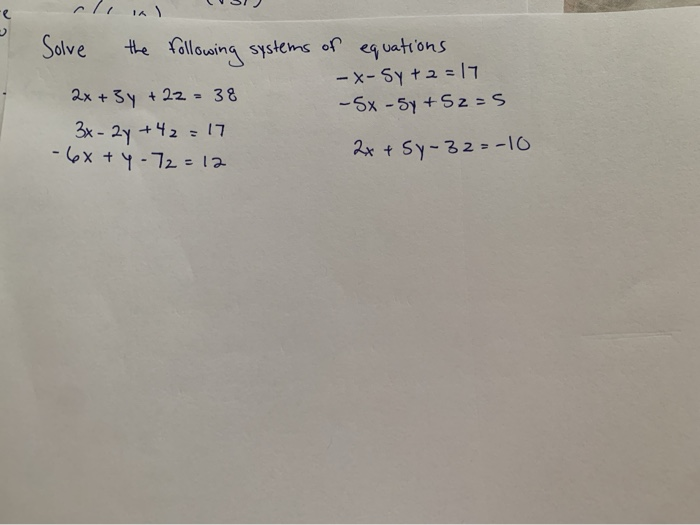 Solve the following systems of equations
2x + 3y + 2z = 38
3x - 2y + 4z = 17
- 6x + y - 7z = 12
- x - 5y + z = 17
- 5x - 5y + 5z = 5
2x + 5y - 3z = -10